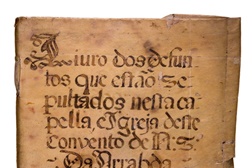 Livro dos defun
tos que estão se
pultados nesta ca
pella, e Igreja deste
Convento de N. S.
Da Arrabda